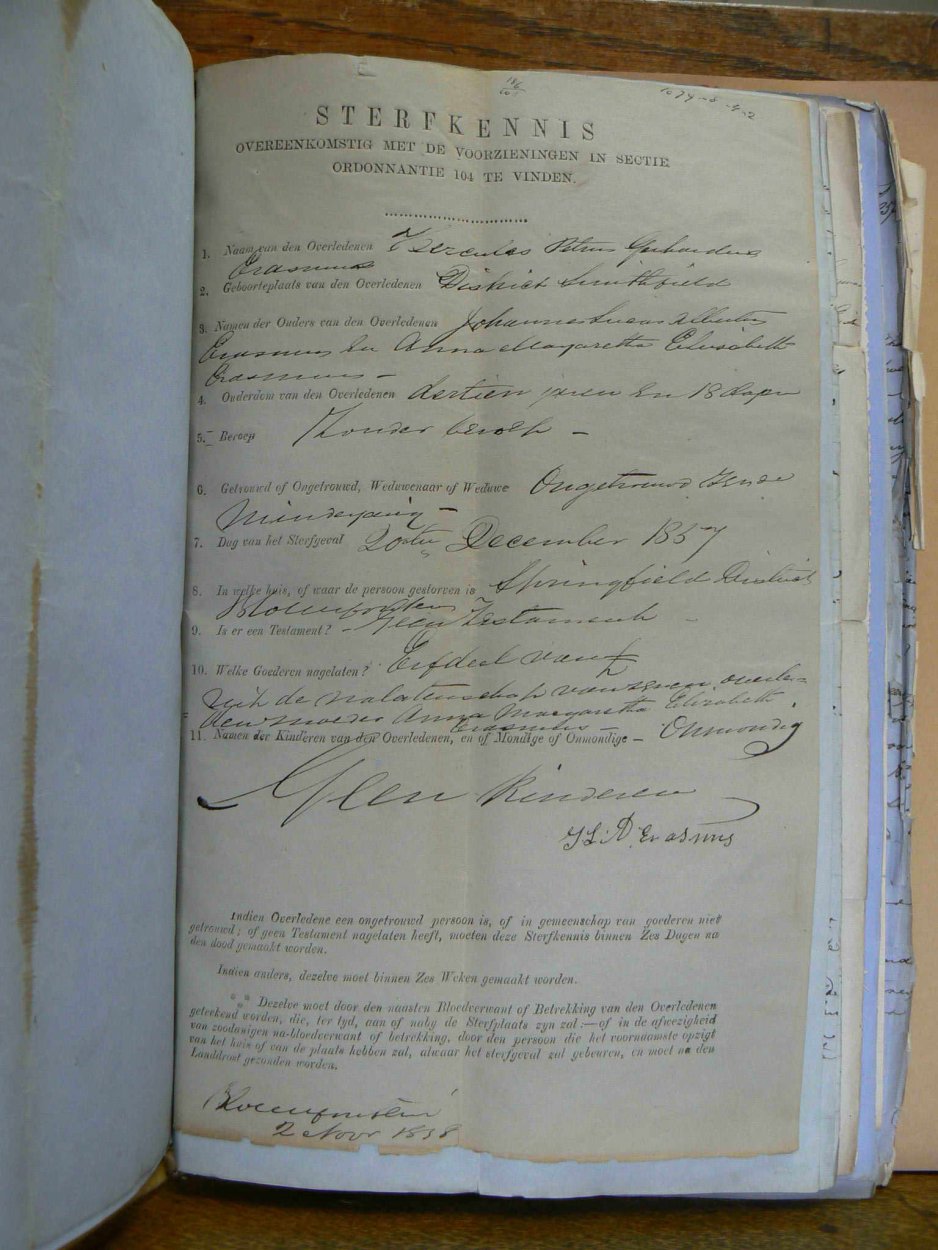 STERFKENNIS
OVEREENKOMSTIG MET DE VOORZIENINGEN IN SECTIE
ORDONNANTIE 104 TE VINDEN.
1. Naam van den Overledenen Hercules Petrus Gerhardus
Erasmus
2. Geboorteplaats van den Overledenen District Smithfield
3. Namen der Ouders van den Overledenen Johannes Lucas Albertus
Erasmus En Anna Margaretha Elisabeth
Erasmus –
4. Ouderdom van den Overledenen dertien jaren En 18 dagen
5. Beroep Zonder beroep –
6. Getrouwd of Ongetrouwd, Weduwenaar of Weduwe Ongetrouwd Zynde
Minderjarig –
7. Dag van het Sterfgeval 20sten December 1857
8. In welke huis, of waar de persoon gestorven is Springfield District
Bloemfontein
9. Is er een Testament? – Geen Testament –
10. Welke Goederen nagelaten? Erfdeel van
uit de nalatenschap van zenen overle=
den moeder Anna Margaretha Elizabeth
Erasmus
11. Namen der Kinderen van den Overledenen, en of Mondige of Onmondige – Onmondig
Geen Kinderen
JLA Erasmus
Indien Overledene een ongetrouwd persoon is, of in gemeenschap van goederen niet
getrouwd; of geen Testament nagelaten heeft, moeten deze Sterfkennis binnen Zes Dagen na
den dood gemaakt worden.
Indien anders, dezelve moet binnen Zes Weken gemaakt worden.
*** Dezelve moet door den naasten Bloedverwant of Betrekking van den Overledenen
geteekend worden, die, ter tyd, aan of naby de Sterfplaats zyn zal:—of in de afwezigheid
van zoodanigen na-bloedverwant of betrekking, door den persoon die het voornaamste opzigt
van het huis of van de plaats hebben zal, alwaar het sterfgeval zal gebeuren, en moet na den
Landdrost gezonden worden.
Bloemfontein
2 Novr 1858